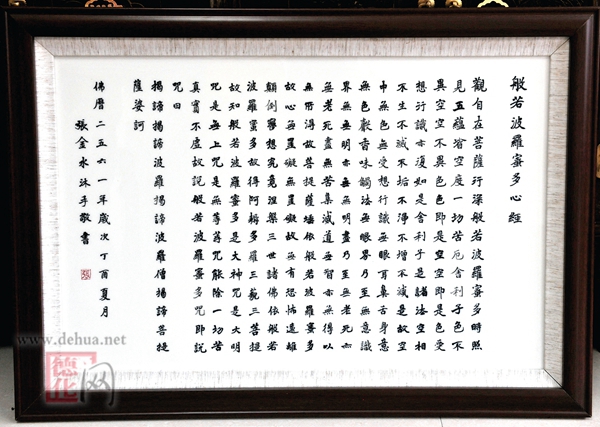 般若波羅蜜多心經
觀自在菩薩行深般若波羅蜜多時照
見五蘊皆空度一切苦厄舍利子色不
異空空不異色色即是空空即是色受
想行識亦復如是舍利子是諸法空相
不生不滅不垢不淨不增不減是故空
中無色無受想行識無眼耳鼻舌身意
無色聲香味觸法無眼界乃至無意識
界無無明亦無無明盡乃至無老死亦
無老死盡無苦集滅道無智亦無得以
無所得故菩提薩埵依般若波羅蜜多
故心無罣礙無罣礙故無有恐怖遠離
顛倒夢想究竟涅槃三世諸佛依般若
波羅蜜多故得阿耨多羅三藐三菩提
故知般若波羅蜜多是大神咒是大明
咒是無上咒是無等等咒能除一切苦
真實不虛故說般若波羅蜜多咒即說
咒曰
揭諦揭諦波羅揭諦波羅僧揭諦菩提
薩婆訶
佛曆二五六一年歲次丁酉夏月
張金水沐手敬書
www.dehua.net
德化网